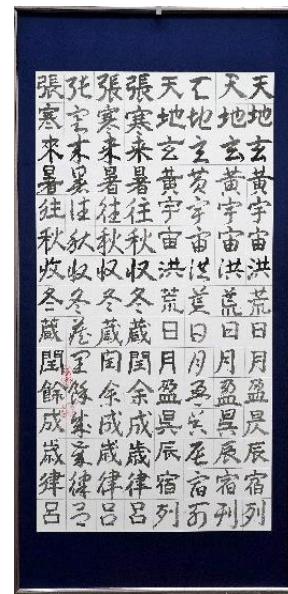 天地玄黄宇宙洪荒日月盈昃辰宿列
天地玄黄宇宙洪荒日月盈昃辰宿列
天地玄黄宇宙洪荒日月盈昃辰宿列
天地玄黃宇宙洪荒日月盈昃辰宿列
張寒来暑往秋収冬蔵閏余成歳律呂
張寒来暑往秋収冬蔵閏余成歳律呂
張寒来暑往秋収冬蔵閏餘成歳律呂
張寒來暑往秋收冬蔵閏餘成歳律呂